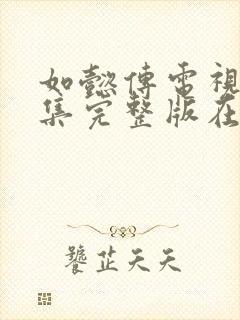 如懿傳電視
集完整版在
饕芷天天